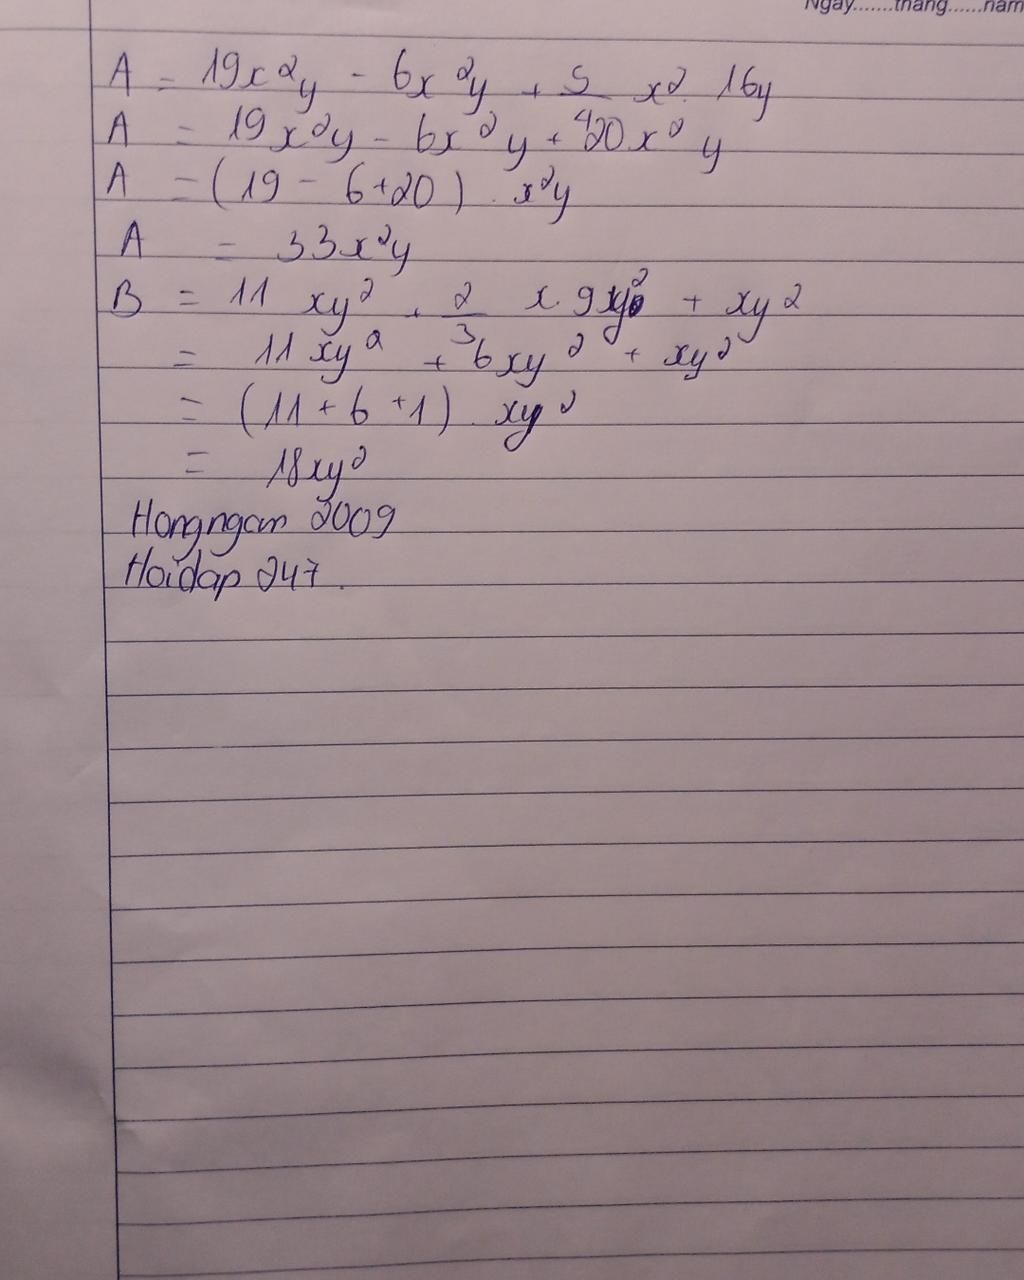 Ngày.......tháng......năm
A = 19x²y - 6x²y + 5/4 x². 16y
A = 19x²y - 6x²y + 20x²y
A = (19 - 6+20) . x²y
A = 33x²y
B = 11 xy² + 2/3 x. 9xy² + xy²
= 11xy² + 6xy² + xy²
= (11 + 6 +1) . xy²
= 18xy²
Hongngan 2009
Hoidap 247.